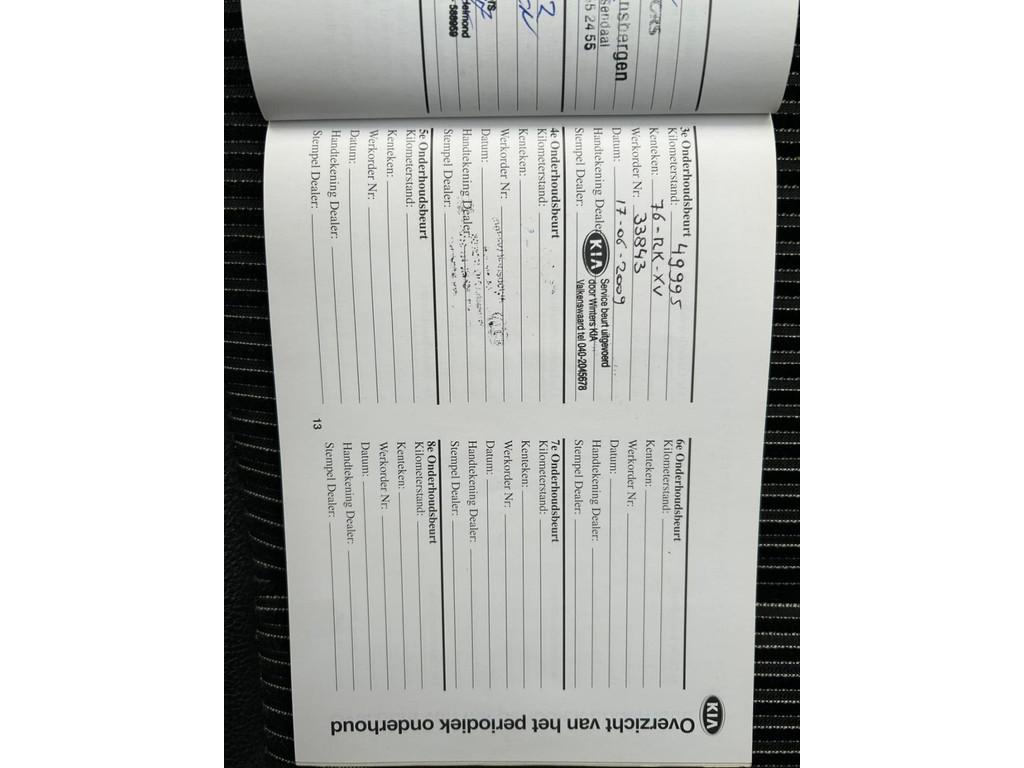 KIA
Overzicht van het periodiek onderhoud
3e Onderhoudsbeurt
Kilometerstand: 49995
Kenteken: 76-RK-XV
Werkorder Nr: 33843
Datum: 17-06-2009
Handtekening Dealer:
Stempel Dealer:
KIA
Service beurt uitgevoerd
door Winters KIA
Valkenswaard tel 040-2045678
4e Onderhoudsbeurt
Kilometerstand:
Kenteken:
Werkorder Nr:
Datum:
Handtekening Dealer:
Stempel Dealer:
5e Onderhoudsbeurt
Kilometerstand:
Kenteken:
Werkorder Nr:
Datum:
Handtekening Dealer:
Stempel Dealer:
13
6e Onderhoudsbeurt
Kilometerstand:
Kenteken:
Werkorder Nr:
Datum:
Handtekening Dealer:
Stempel Dealer:
7e Onderhoudsbeurt
Kilometerstand:
Kenteken:
Werkorder Nr:
Datum:
Handtekening Dealer:
Stempel Dealer:
8e Onderhoudsbeurt
Kilometerstand:
Kenteken:
Werkorder Nr:
Datum:
Handtekening Dealer:
Stempel Dealer: